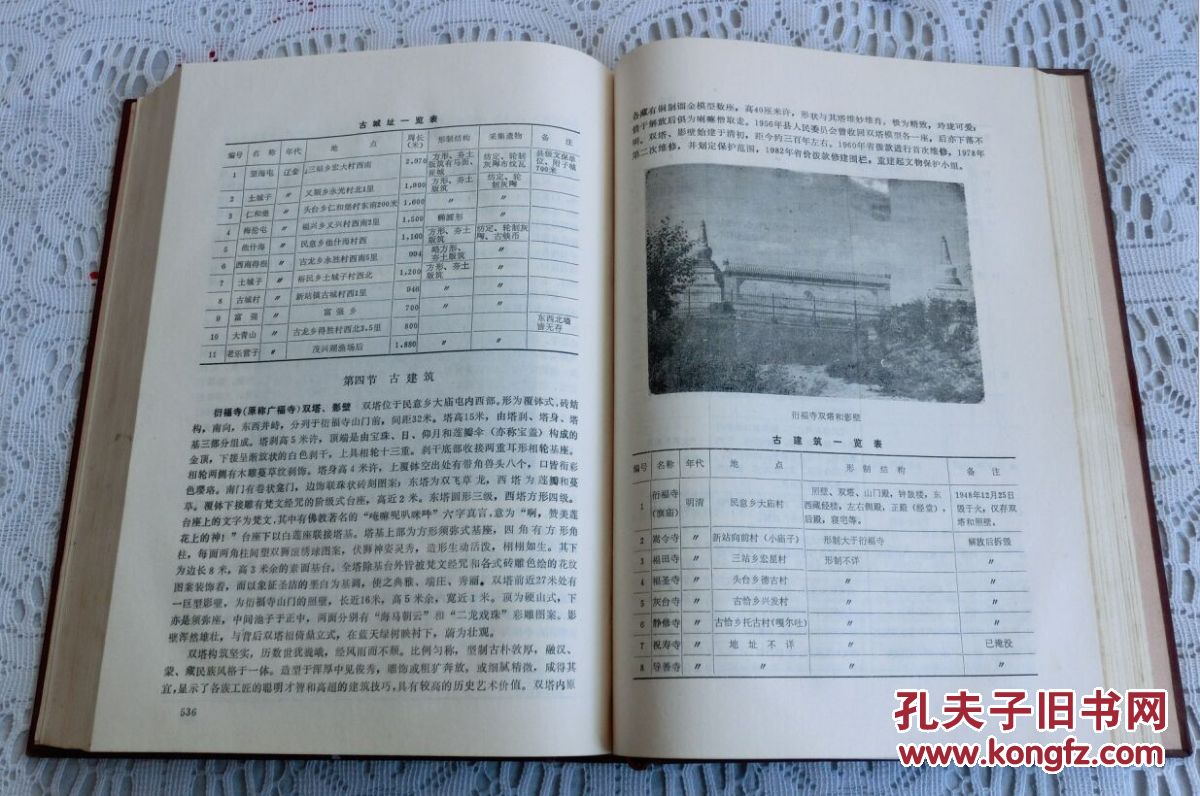 古城址一览表
编号 名称 年代 地点 周长(米) 形制结构 采集遗物 备注
1 望海屯 辽金 三站乡宏大村西南 2,070 方形、夯土版筑有马面、瓮城 纺定、轮制灰陶布纹瓦 县级文保单位、附子城700米
2 土城子 〃 义顺乡永光村北1里 1,900 方形、夯土版筑 纺定、轮制灰陶
3 仁和堡 〃 头台乡仁和堡村东南200米 1,600 〃 〃
4 梅伦屯 〃 福兴乡义兴村西南2里 1,500 椭圆形 〃
5 他什海 〃 民意乡他什海村西 1,100 方形、夯土版筑 纺定、轮制灰陶、古钱币
6 西南得根 〃 古龙乡永胜村西南5里 994 略方形、夯土版筑 〃
7 土城子 〃 裕民乡土城子村西北 1,200 方形、夯土版筑 〃
8 古城村 〃 新站镇古城村西1里 946 〃 〃
9 富强 〃 富强乡 700 〃 〃
10 大青山 〃 古龙乡得胜村西北3.5里 800 东西北墙皆无存
11 老乐营子 〃 茂兴湖渔场后 1,880 〃 〃
第四节 古建筑
衍福寺(原称广福寺)双塔、影壁 双塔位于民意乡大庙屯内西部。形为覆钵式,砖结
构,南向,东西并峙,分列于衍福寺山门前,间距32米。塔高15米,由塔刹、塔身、塔
基三部分组成。塔刹高5米许,顶端是由宝珠、日、仰月和莲瓣伞(亦称宝盖)构成的
金顶,下接呈渐放状的白色刹干,上具相轮十三重。刹干底部收接两重耳形相轮基座。
相轮两侧有木雕蔓草纹刹饰。塔身高4米许,上覆钵空出处有带角兽头八个,口皆衔彩
色璎珞。南门有卷状龛门,边饰联珠状砖刻图案;东塔为双飞草龙,西塔为莲瓣和蔓
草。覆钵下接雕有梵文经咒的阶级式台座,高近2米。东塔圆形三级,西塔方形四级。
台座上的文字为梵文,其中有佛教著名的“唵嘛呢叭咪吽”六字真言,意为“啊,赞美莲
花上的神!”台座下以白莲座联接塔基。塔基上部为方形须弥式基座,四角有方形角
柱,每面两角柱间塑双狮滚绣球图案,伏狮神姿灵秀,造形生动活泼,栩栩如生。其下
为边长8米,高3米余的素面基台。全塔除基台外皆被梵文经咒和各式砖雕色绘的花纹
图案装饰着,而以象征圣洁的垩白为基调,使之典雅、端庄、秀丽。双塔前近27米处有
一巨型影壁,为衍福寺山门的照壁,长近16米,高5米余,宽近1米。顶为硬山式,下
亦是须弥座,中间池子于正中,两面分别有“海马朝云”和“二龙戏珠”彩雕图案。影
壁浑然雄壮,与背后双塔相倚鼎立式,在蓝天绿树映衬下,蔚为壮观。
双塔构筑坚实,历数世犹巍峨,经风雨而不颓。比例匀称,型制古朴敦厚,融汉、
蒙、藏民族风格于一体。造型于浑厚中见俊秀,雕饰或粗犷奔放,或细腻精微,咸得其
宜,显示了各族工匠的聪明才智和高超的建筑技巧,具有较高的历史艺术价值。双塔内原
536
各藏有铜制镏金模型数座,高40厘米许,形状与其塔维妙维肖,极为精致,玲珑可爱;
惜于解放后俱为喇嘛僧取走。1956年县人民委员会曾收回双塔模型各一座,后亦下落不
明。双塔、影壁始建于清初,距今约三百年左右。1960年省拨款进行首次维修,1978年
第二次维修,并划定保护范围,1982年省拨款修建围栏,重建起文物保护小组。
衍福寺双塔和影壁
古建筑一览表
编号 名称 年代 地点 形制结构 备注
1 衍福寺(旗庙) 明清 民意乡大庙村 照壁、双塔、山门殿,钟鼓楼,东西藏经楼,左右侧殿,正殿(经堂),后殿,寝宅等。 1948年12月25日毁于火,仅存双塔和照壁。
2 嵩令寺 〃 新站向前村(小庙子) 形制大于衍福寺 解放后拆毁
3 福田寺 〃 三站乡宏星村 形制不详
4 福圣寺 〃 头台乡德吉村 〃 〃
5 灰台寺 〃 古恰乡兴发村 〃 〃
6 静修寺 〃 古恰乡托古村(嘎尔吐) 〃 〃
7 祝寿寺 〃 地址不详 〃 已淹没
8 导善寺 〃 〃 〃 〃
孔夫子旧书网
www.kongfz.com